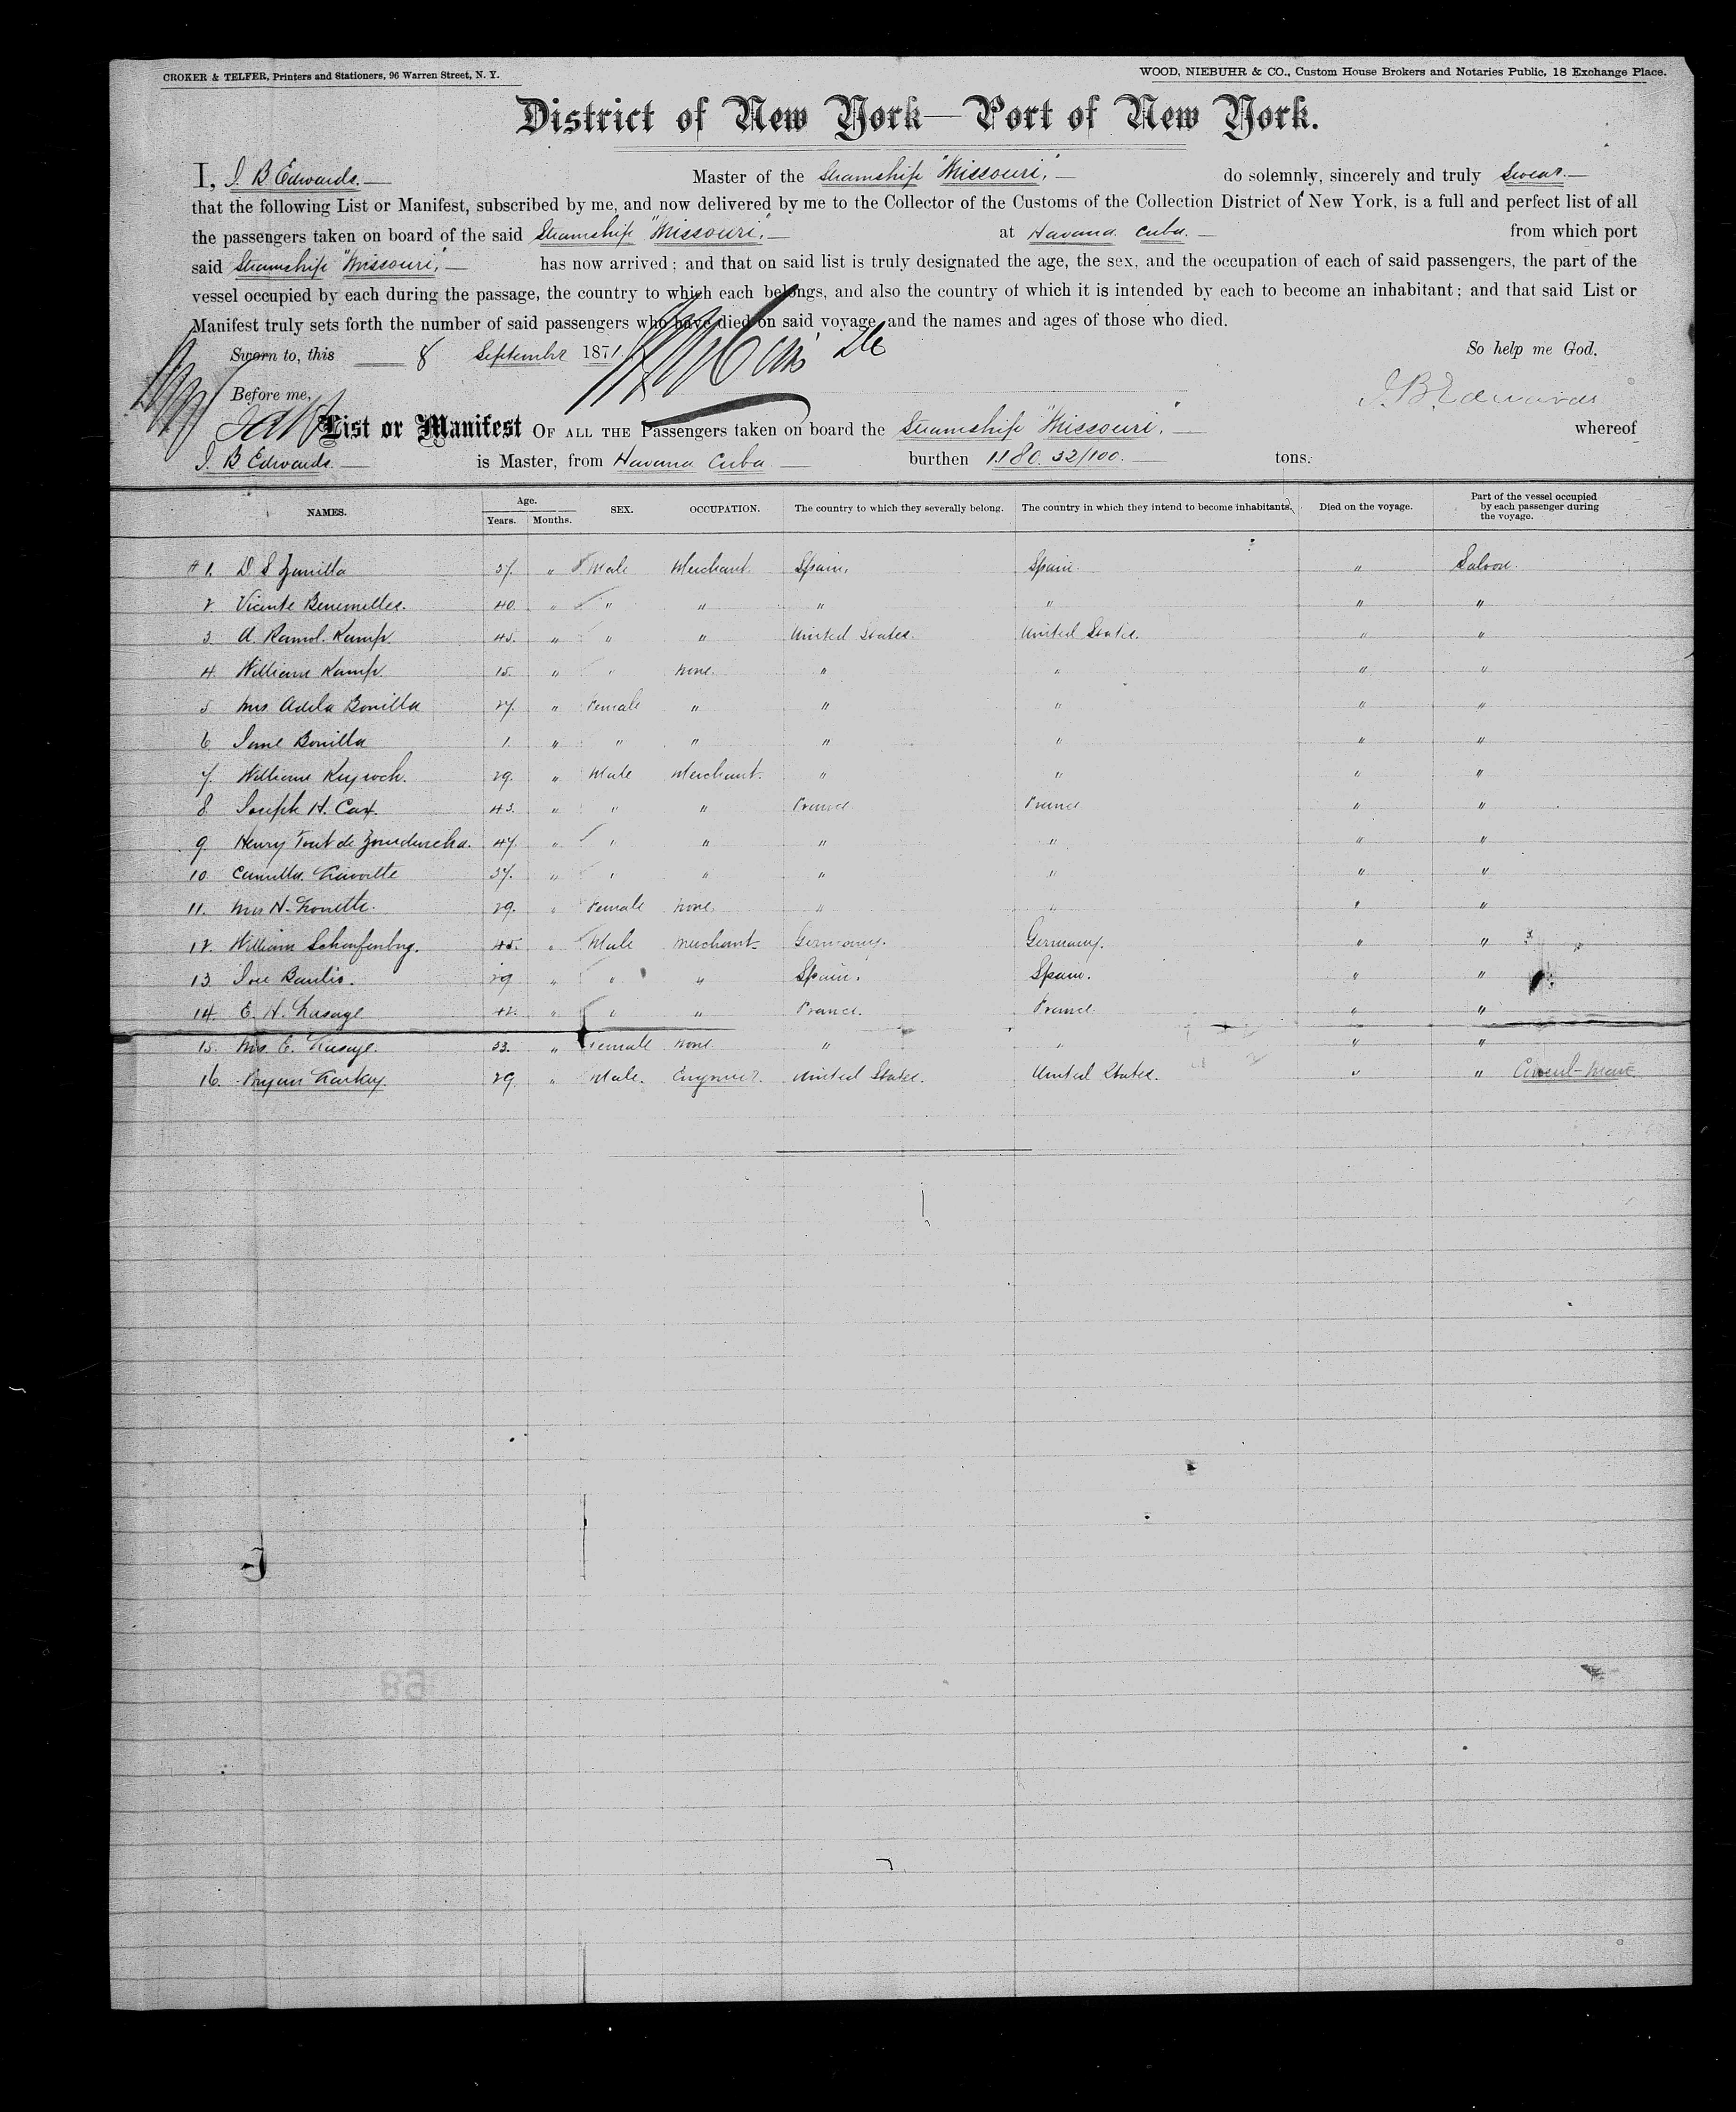 CROKER & TELFER, Printers and Stationers, 96 Warren Street, N. Y.
WOOD, NIEBUHR & CO., Custom House Brokers and Notaries Public, 18 Exchange Place.
District of New York—Port of New York.
I, J. B Edwards.— Master of the Steamship "Missouri,"— do solemnly, sincerely and truly swear.—
that the following List or Manifest, subscribed by me, and now delivered by me to the Collector of the Customs of the Collection District of New York, is a full and perfect list of all
the passengers taken on board of the said Steamship "Missouri,"— at Havana Cuba.— from which port
said Steamship "Missouri,"— has now arrived; and that on said list is truly designated the age, the sex, and the occupation of each of said passengers, the part of the
vessel occupied by each during the passage, the country to which each belongs, and also the country of which it is intended by each to become an inhabitant; and that said List or
Manifest truly sets forth the number of said passengers who have died on said voyage, and the names and ages of those who died.
Sworn to, this 8 September 1871. So help me God.
Before me, J. B. Edwards
List or Manifest OF ALL THE Passengers taken on board the Steamship "Missouri,"— whereof
J. B Edwards.— is Master, from Havana Cuba— burthen 1180. 32/100.— tons.
NAMES. Age. Years. Months. SEX. OCCUPATION. The country to which they severally belong. The country in which they intend to become inhabitants. Died on the voyage. Part of the vessel occupied by each passenger during the voyage.
1. D. S 37. " Male Merchant Spain. Spain. " Saloon.
2. Vicente 40. " " " " " " "
3. A. Kamp. 45. " " " United States. United States. " "
4. William Kamp. 15. " " None. " " " "
5. Mrs Adela Bonilla 27. " Female " " " " "
6. Bonilla 1. " " " " " " "
7. William 29. " Male Merchant. " " " "
8. Joseph H. Cox. 43. " " " France France " "
9. Henry de 47. " " " " " " "
10. 37. " " " " " " "
11. Mrs 29. " Female None. " " " "
12. William 45. " Male Merchant Germany. Germany. " "
13. 29 " " " Spain. Spain. " "
14. E. H. Lasage 42. " " " France. France. " "
15. Mrs. E. Lasage. 33. " Female None " " " "
16. 29. " Male. Engineer. United States. United States. " "